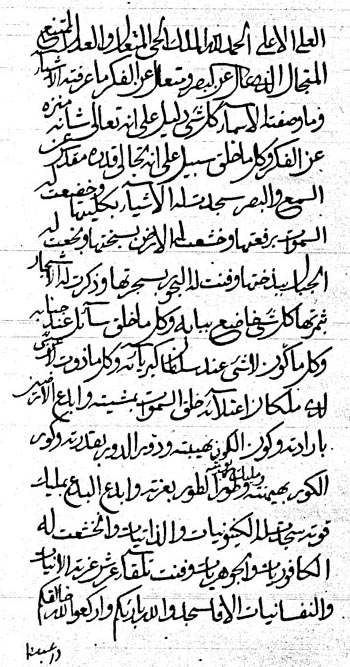 العلي الاعلى الحمد لله الملك الحي المتعالي والعليم المتنع
المتجال الذي تعالى عن البصر ومتعال عن الفكر ما عرفته الاشياء
وما وصفته الاسماء كل شيء دليل على انه تعالى شانه منزه
عن الفكر وكل ما خلق سبيل على انه الجالي قدره مقدس عن
السمع والبصر سجدت له الاشياء بكليتها وخضعت له
السموات برفعتها وخشعت له الارض بسخنها وبخعت له
الجبال بباذختها وفنت له البحور بسجرتها وذكرت له الاشجار
بثمرتها كل شيء خاضع ببابه وكل ما خلق سائل عند جنابه
وكل ما كون لاشيء عند سلطان كبريائه وكل ما ذوت
لدى مليكان اعتلائه خلق السموات بمشيته وابدع الارضين
بارادته وكون الكون بهيبته ودور الدور بقدرته وكور
الكور بهيمنته وطور الطور بعزته وابدع البدع بمليك
قوته سجدت له الكينونيات والذاتيات وانخشعت له
الكافوريات والجوهريات وفنت تلقاء عرش عزته الانيات
والنفسانيات الا فاسجدوا لله بارئكم واركعوا لله خالقكم